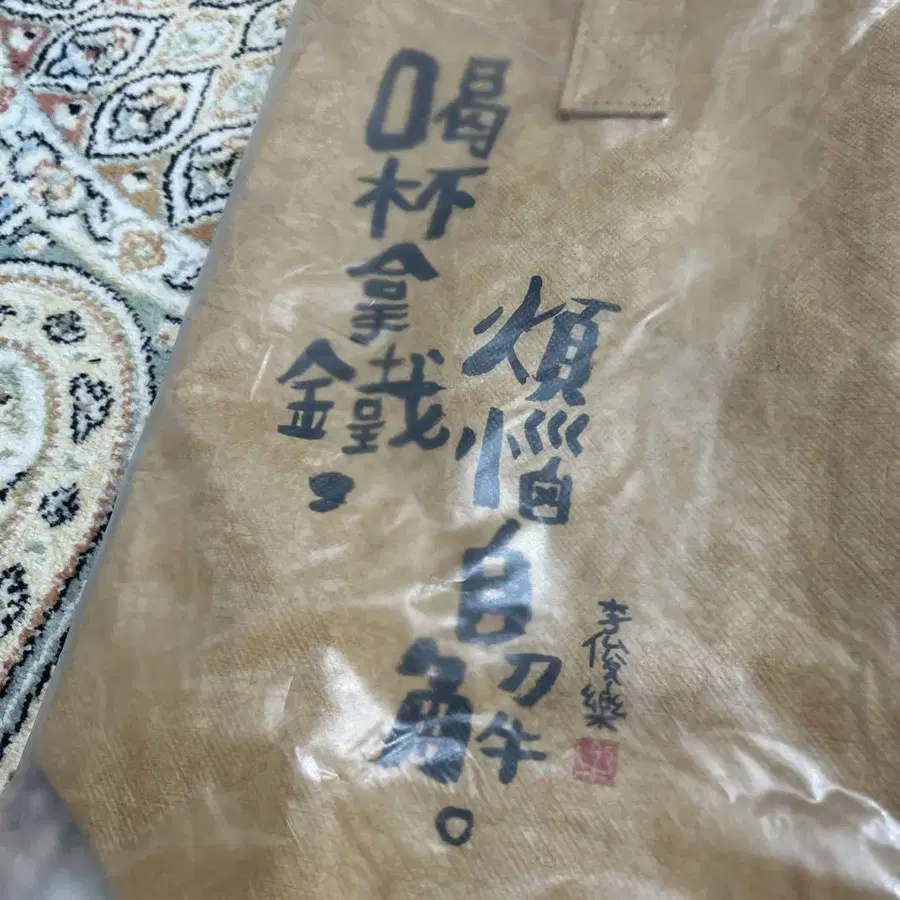 喝杯拿鐵，
煩惱自解。
李俊樂